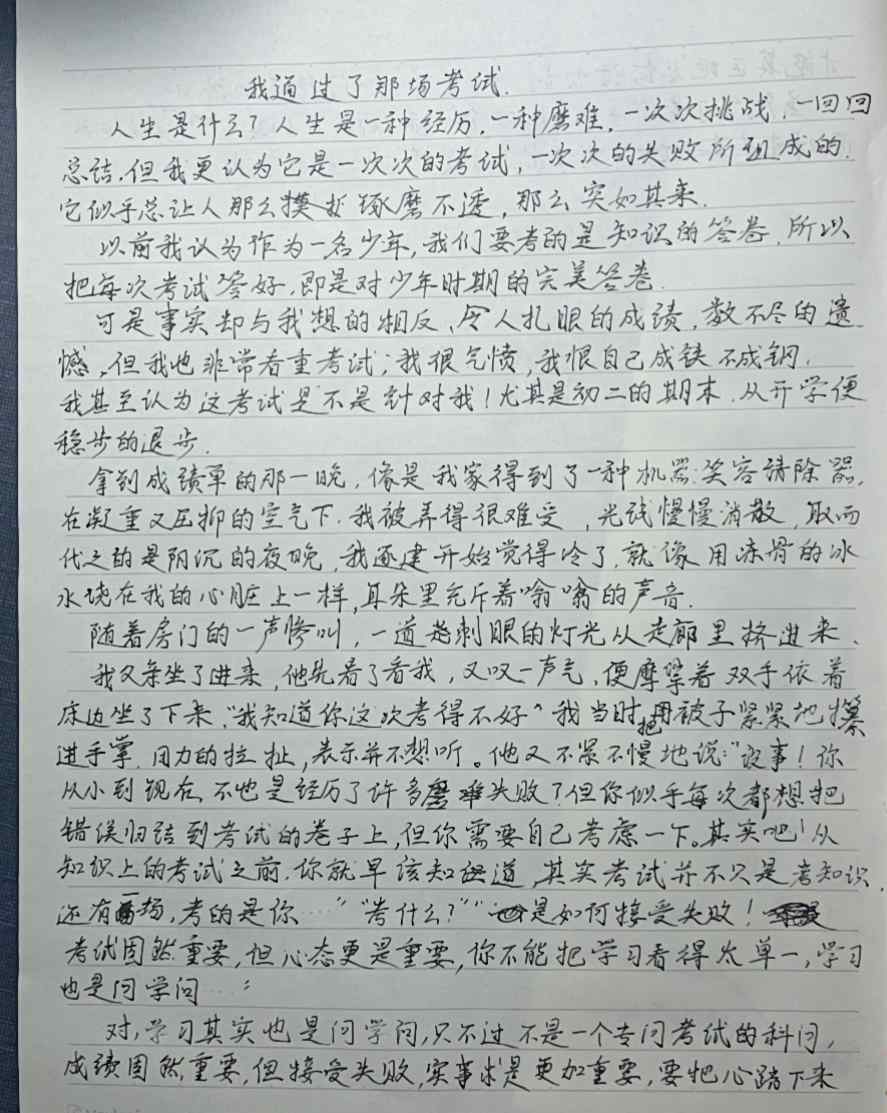 我通过了那场考试.
人生是什么？人生是一种经历，一种磨难，一次次挑战，一回回
总结.但我更认为它是一次次的考试，一次次的失败所组成的.
它似乎总让人那么 琢磨不透，那么突如其来.
以前我认为作为一名少年，我们要考的是知识的答卷，所以
把每次考试答好，即是对少年时期的完美答卷.
可是事实却与我想的相反，令人扎眼的成绩，数不尽的遗
憾，但我也非常看重考试；我很气愤，我恨自己成铁不成钢.
我甚至认为这考试是不是针对我！尤其是初二的期末，从开学便
稳步的退步.
拿到成绩单的那一晚，像是我家得到了一种机器:笑容清除器，
在凝重又压抑的空气下.我被弄得很难受，光线慢慢消散，取而
代之的是阴沉的夜晚，我逐建开始觉得冷了，就像用冻骨的冰
水浇在我的心脏上一样，耳朵里充斥着嗡嗡的声音.
随着房门的一声惨叫，一道刺眼的灯光从走廊里挤进来.
我父亲坐了进来，他先看了看我，又叹一声气，便摩挲着双手依着
床边坐了下来，“我知道你这次考得不好”我当时把用被子紧紧地攥
进手掌，用力的拉扯，表示并不想听。他又不紧不慢地说：“没事！你
从小到现在，不也是经历了许多磨难失败？但你似乎每次都想把
错误归结到考试的卷子上，但你需要自己考虑一下。其实吧！从
知识上的考试之前，你就早该知道，其实考试并不只是考知识，
还有一场，考的是你……”“考什么？”“是如何接受失败！
考试固然重要，但心态更是重要，你不能把学习看得太单一，学习
也是门学问……”
对，学习其实也是门学问，只不过不是一个专门考试的科门，
成绩固然重要，但接受失败，实事求是更加重要，要把心踏下来